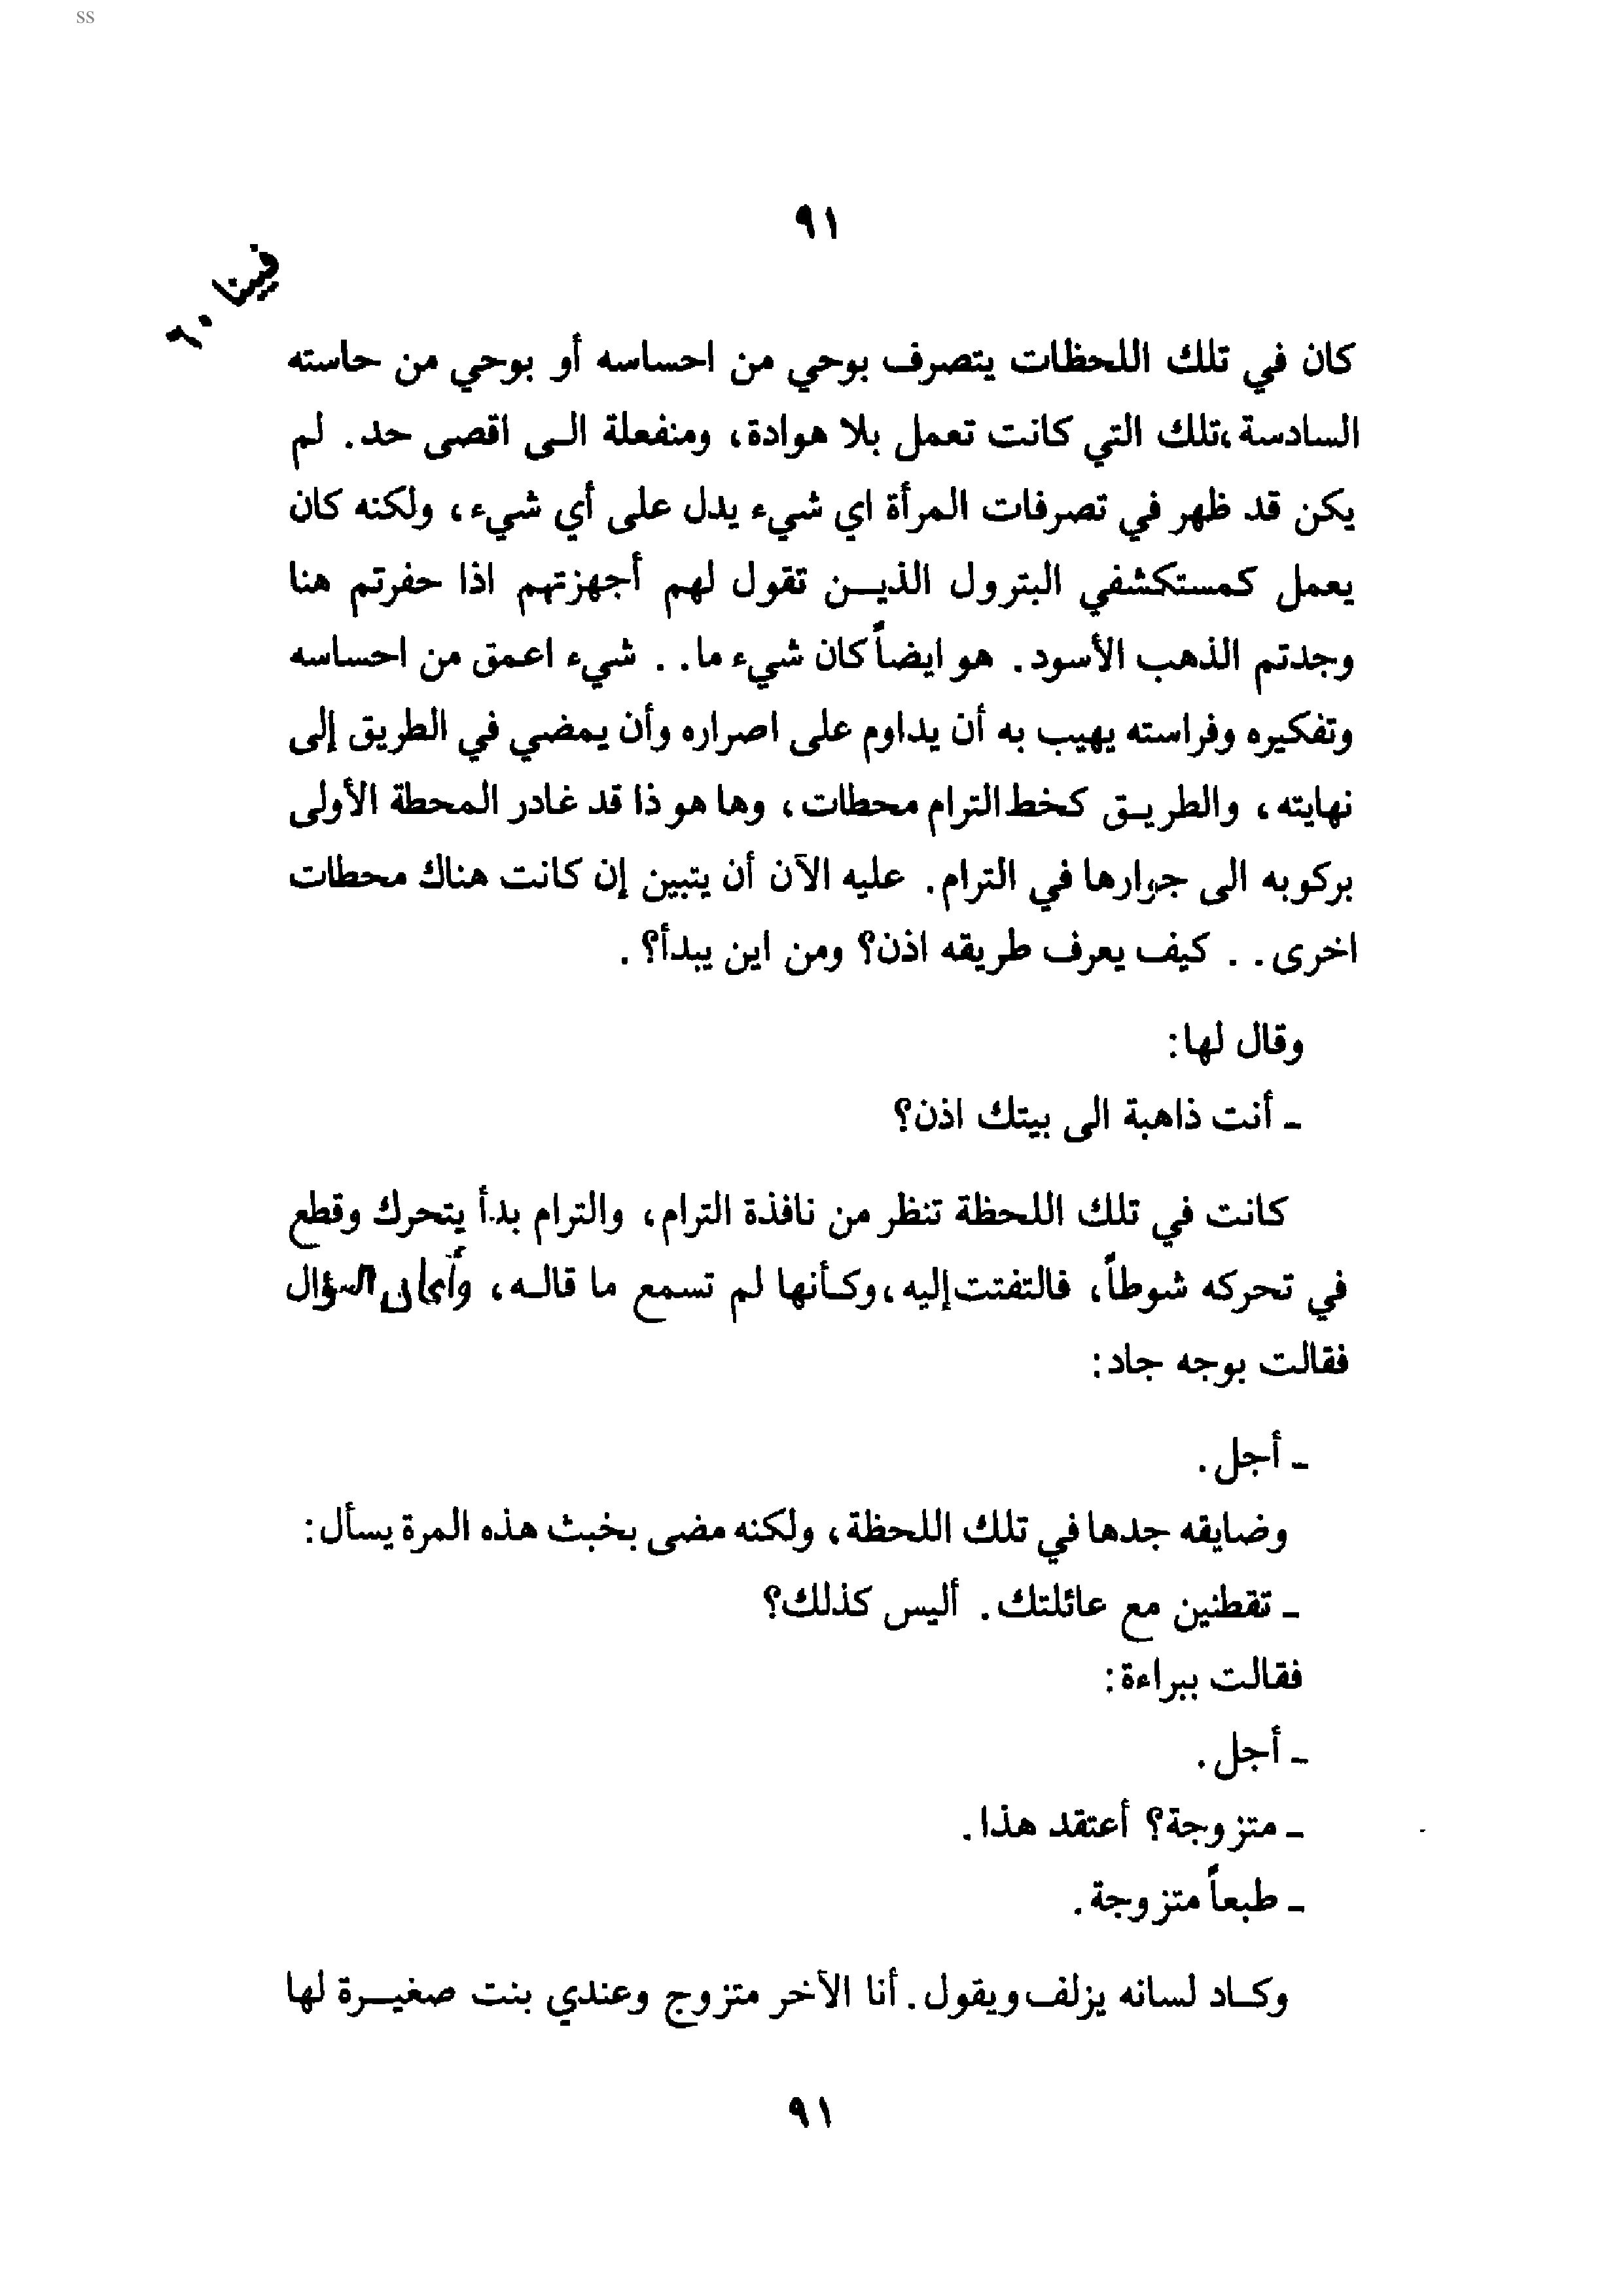 ss
٩١
فيينا ٦٠
كان في تلك اللحظات يتصرف بوحي من احساسه أو بوحي من حاسته
السادسة،تلك التي كانت تعمل بلا هوادة، ومنفعلة الـى اقصى حد. لم
يكن قد ظهر في تصرفات المرأة اي شيء يدل على أي شيء، ولكنه كان
يعمل كمستكشفي البترول الذيـن تقول لهم أجهزتهم اذا حفرتم هنا
وجدتم الذهب الأسود. هو ايضاً كان شيء ما.. شيء اعمق من احساسه
وتفكيره وفراسته يهيب به أن يداوم على اصراره وأن يمضي في الطريق إلى
نهايته، والطريـق كخط الترام محطات، وها هو ذا قد غادر المحطة الأولى
بركوبه الى جوارها في الترام. عليه الآن أن يتبين إن كانت هناك محطات
اخرى.. كيف يعرف طريقه اذن؟ ومن اين يبدأ؟.
وقال لها:
ـ أنت ذاهبة الى بيتك اذن؟
كانت في تلك اللحظة تنظر من نافذة الترام، والترام بدأ يتحرك وقطع
في تحركه شوطاً، فالتفتت إليه،وكـأنها لم تسمع ما قالـه، السؤال
فقالت بوجه جاد:
ـ أجل.
وضايقه جدها في تلك اللحظة، ولكنه مضى بخبث هذه المرة يسأل:
ـ تقطنين مع عائلتك. أليس كذلك؟
فقالت ببراءة:
ـ أجل.
ـ متزوجة؟ أعتقد هذا.
ـ طبعاً متزوجة.
وكـاد لسانه يزلف ويقول. أنا الآخر متزوج وعندي بنت صغيـرة لها
٩١